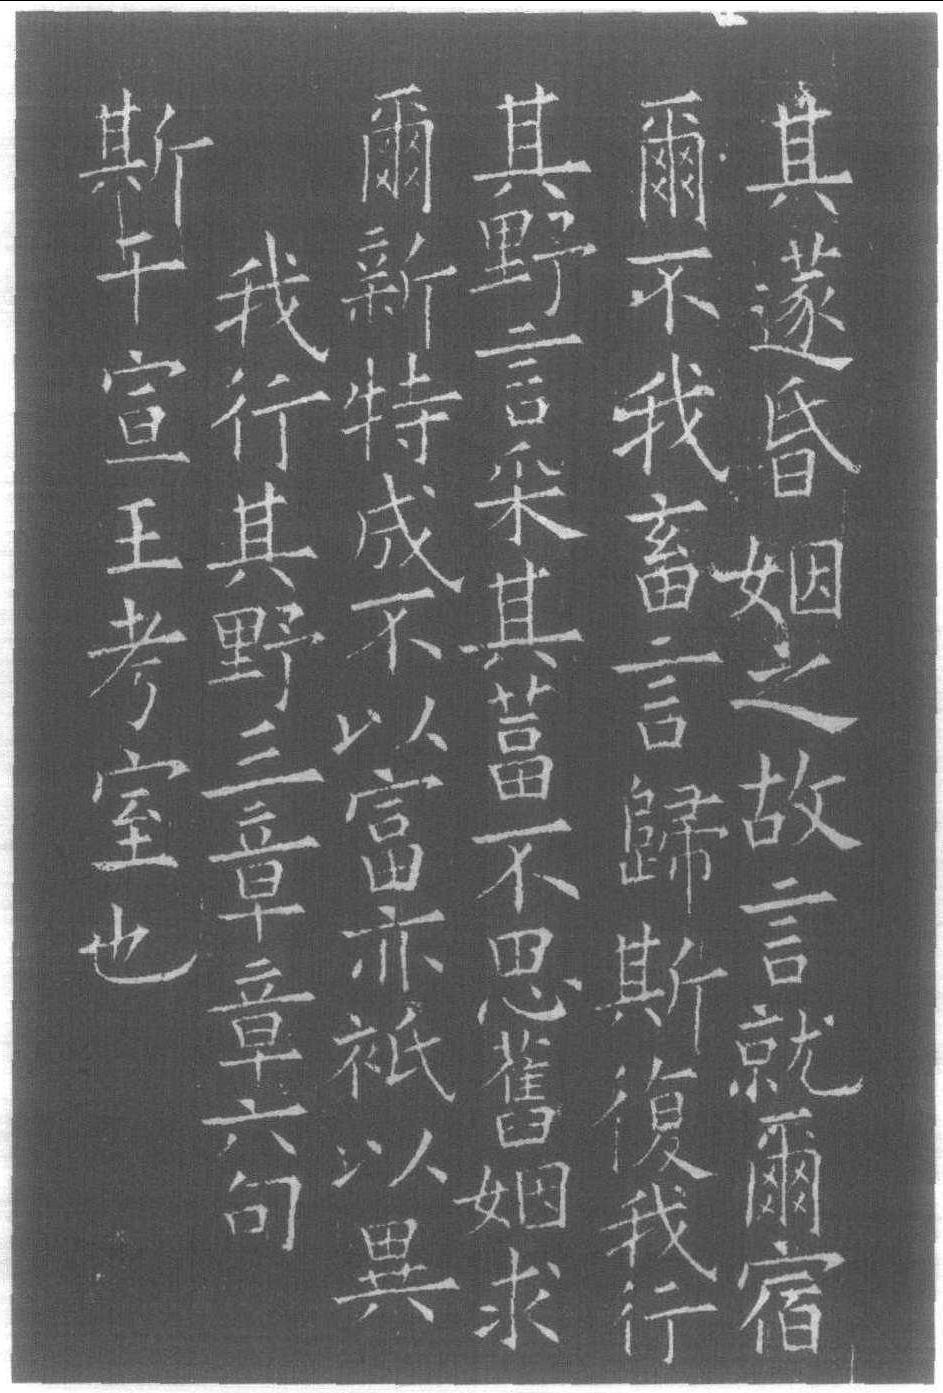 其蓫昏姻之故言就爾宿
爾不我畜言歸斯復我行
其野言采其葍不思舊姻求
爾新特成不以富亦祇以異
我行其野三章章六句
斯干宣王考室也